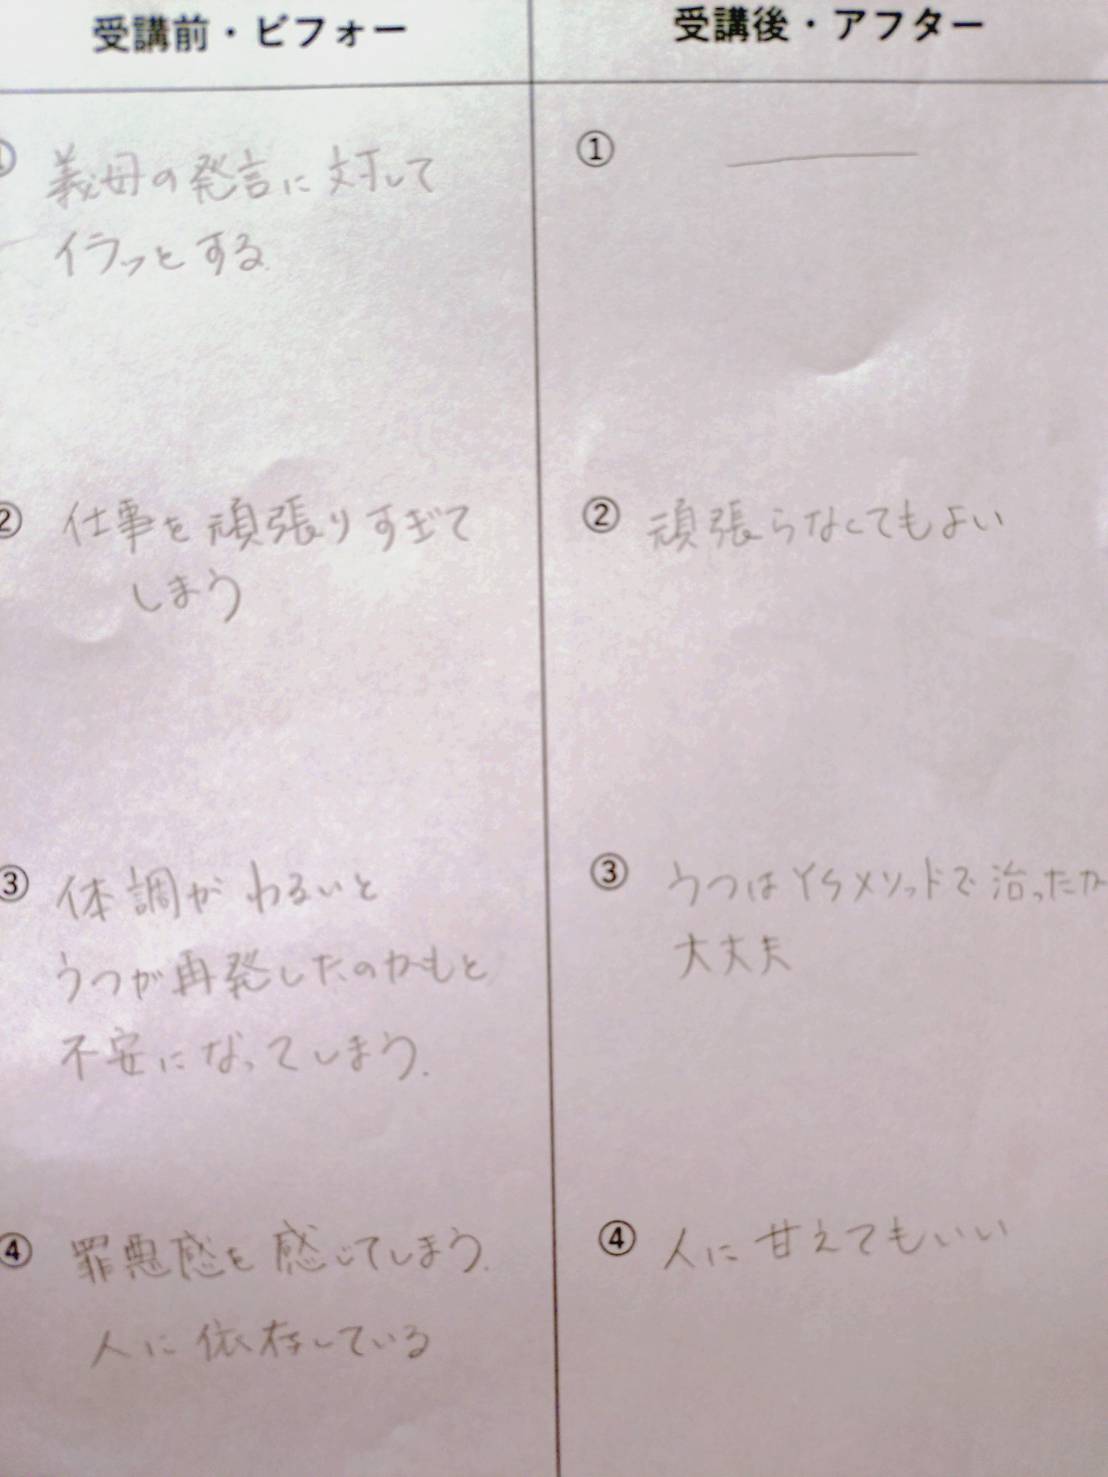 受講前・ビフォー
受講後・アフター
① 義母の発言に対して
イラッとする
①
② 仕事を頑張りすぎて
しまう
② 頑張らなくてもよい
③ 体調がわるいと
うつが再発したのかもと
不安になってしまう.
③ うつはYSメソッドで治ったか
大丈夫
④ 罪悪感を感じてしまう.
人に依存している
④ 人に甘えてもいい